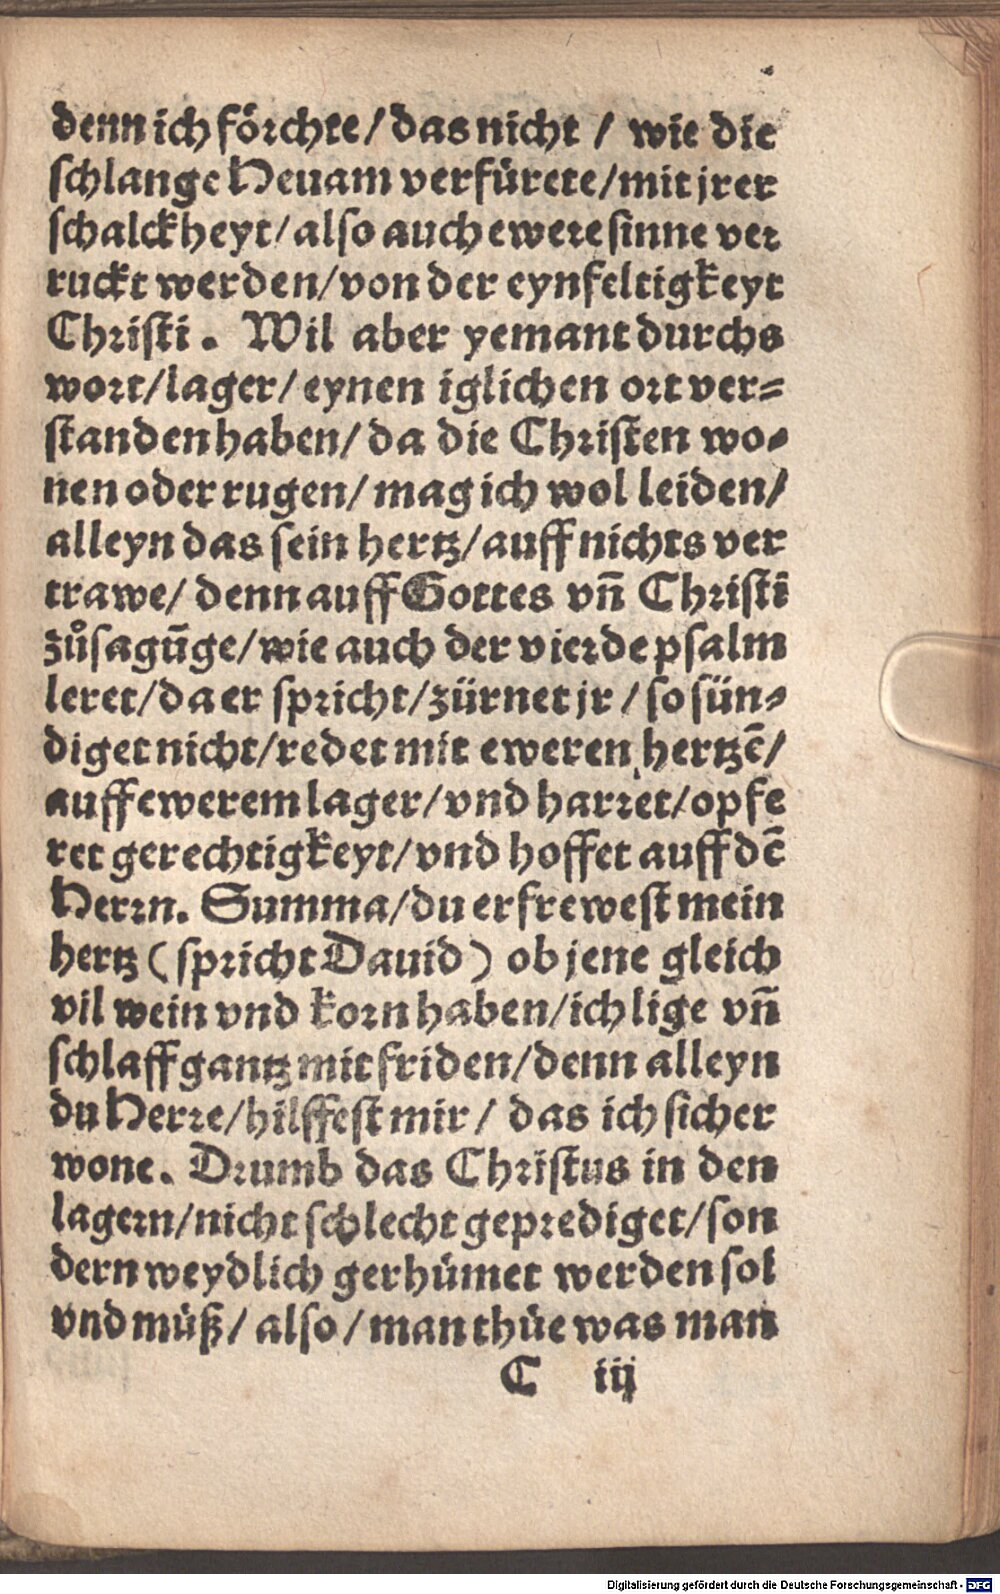 denn ich förchte / das nicht / wie die
schlange Heuam verfürete / mit jrer
schalckheyt / also auch ewere sinne ver
ruckt werden / von der eynfeltigkeyt
Christi. Wil aber yemant durchs
wort / lager / eynen iglichen ort ver=
standen haben / da die Christen wo=
nen oder rugen / mag ich wol leiden /
alleyn das sein hertz / auff nichts ver
trawe / denn auff Gottes vn̄ Christi
zůsagūge / wie auch der vierde psalm
leret / da er spricht / zürnet jr / so sün=
diget nicht / redet mit eweren hertzē /
auff ewerem lager / vnd harret / opfe
ret gerechtigkeyt / vnd hoffet auff dē
Herrn. Summa / du erfrewest mein
hertz ( spricht Dauid ) ob jene gleich
vil wein vnd korn haben / ich lige vn̄
schlaff gantz mit friden / denn alleyn
du Herre / hilffest mir / das ich sicher
wone. Drumb das Christus in den
lagern / nicht schlecht geprediget / son
dern weydlich gerhümet werden sol
vnd müß / also / man thüe was man
C iij
Digitalisierung gefördert durch die Deutsche Forschungsgemeinschaft - DFG